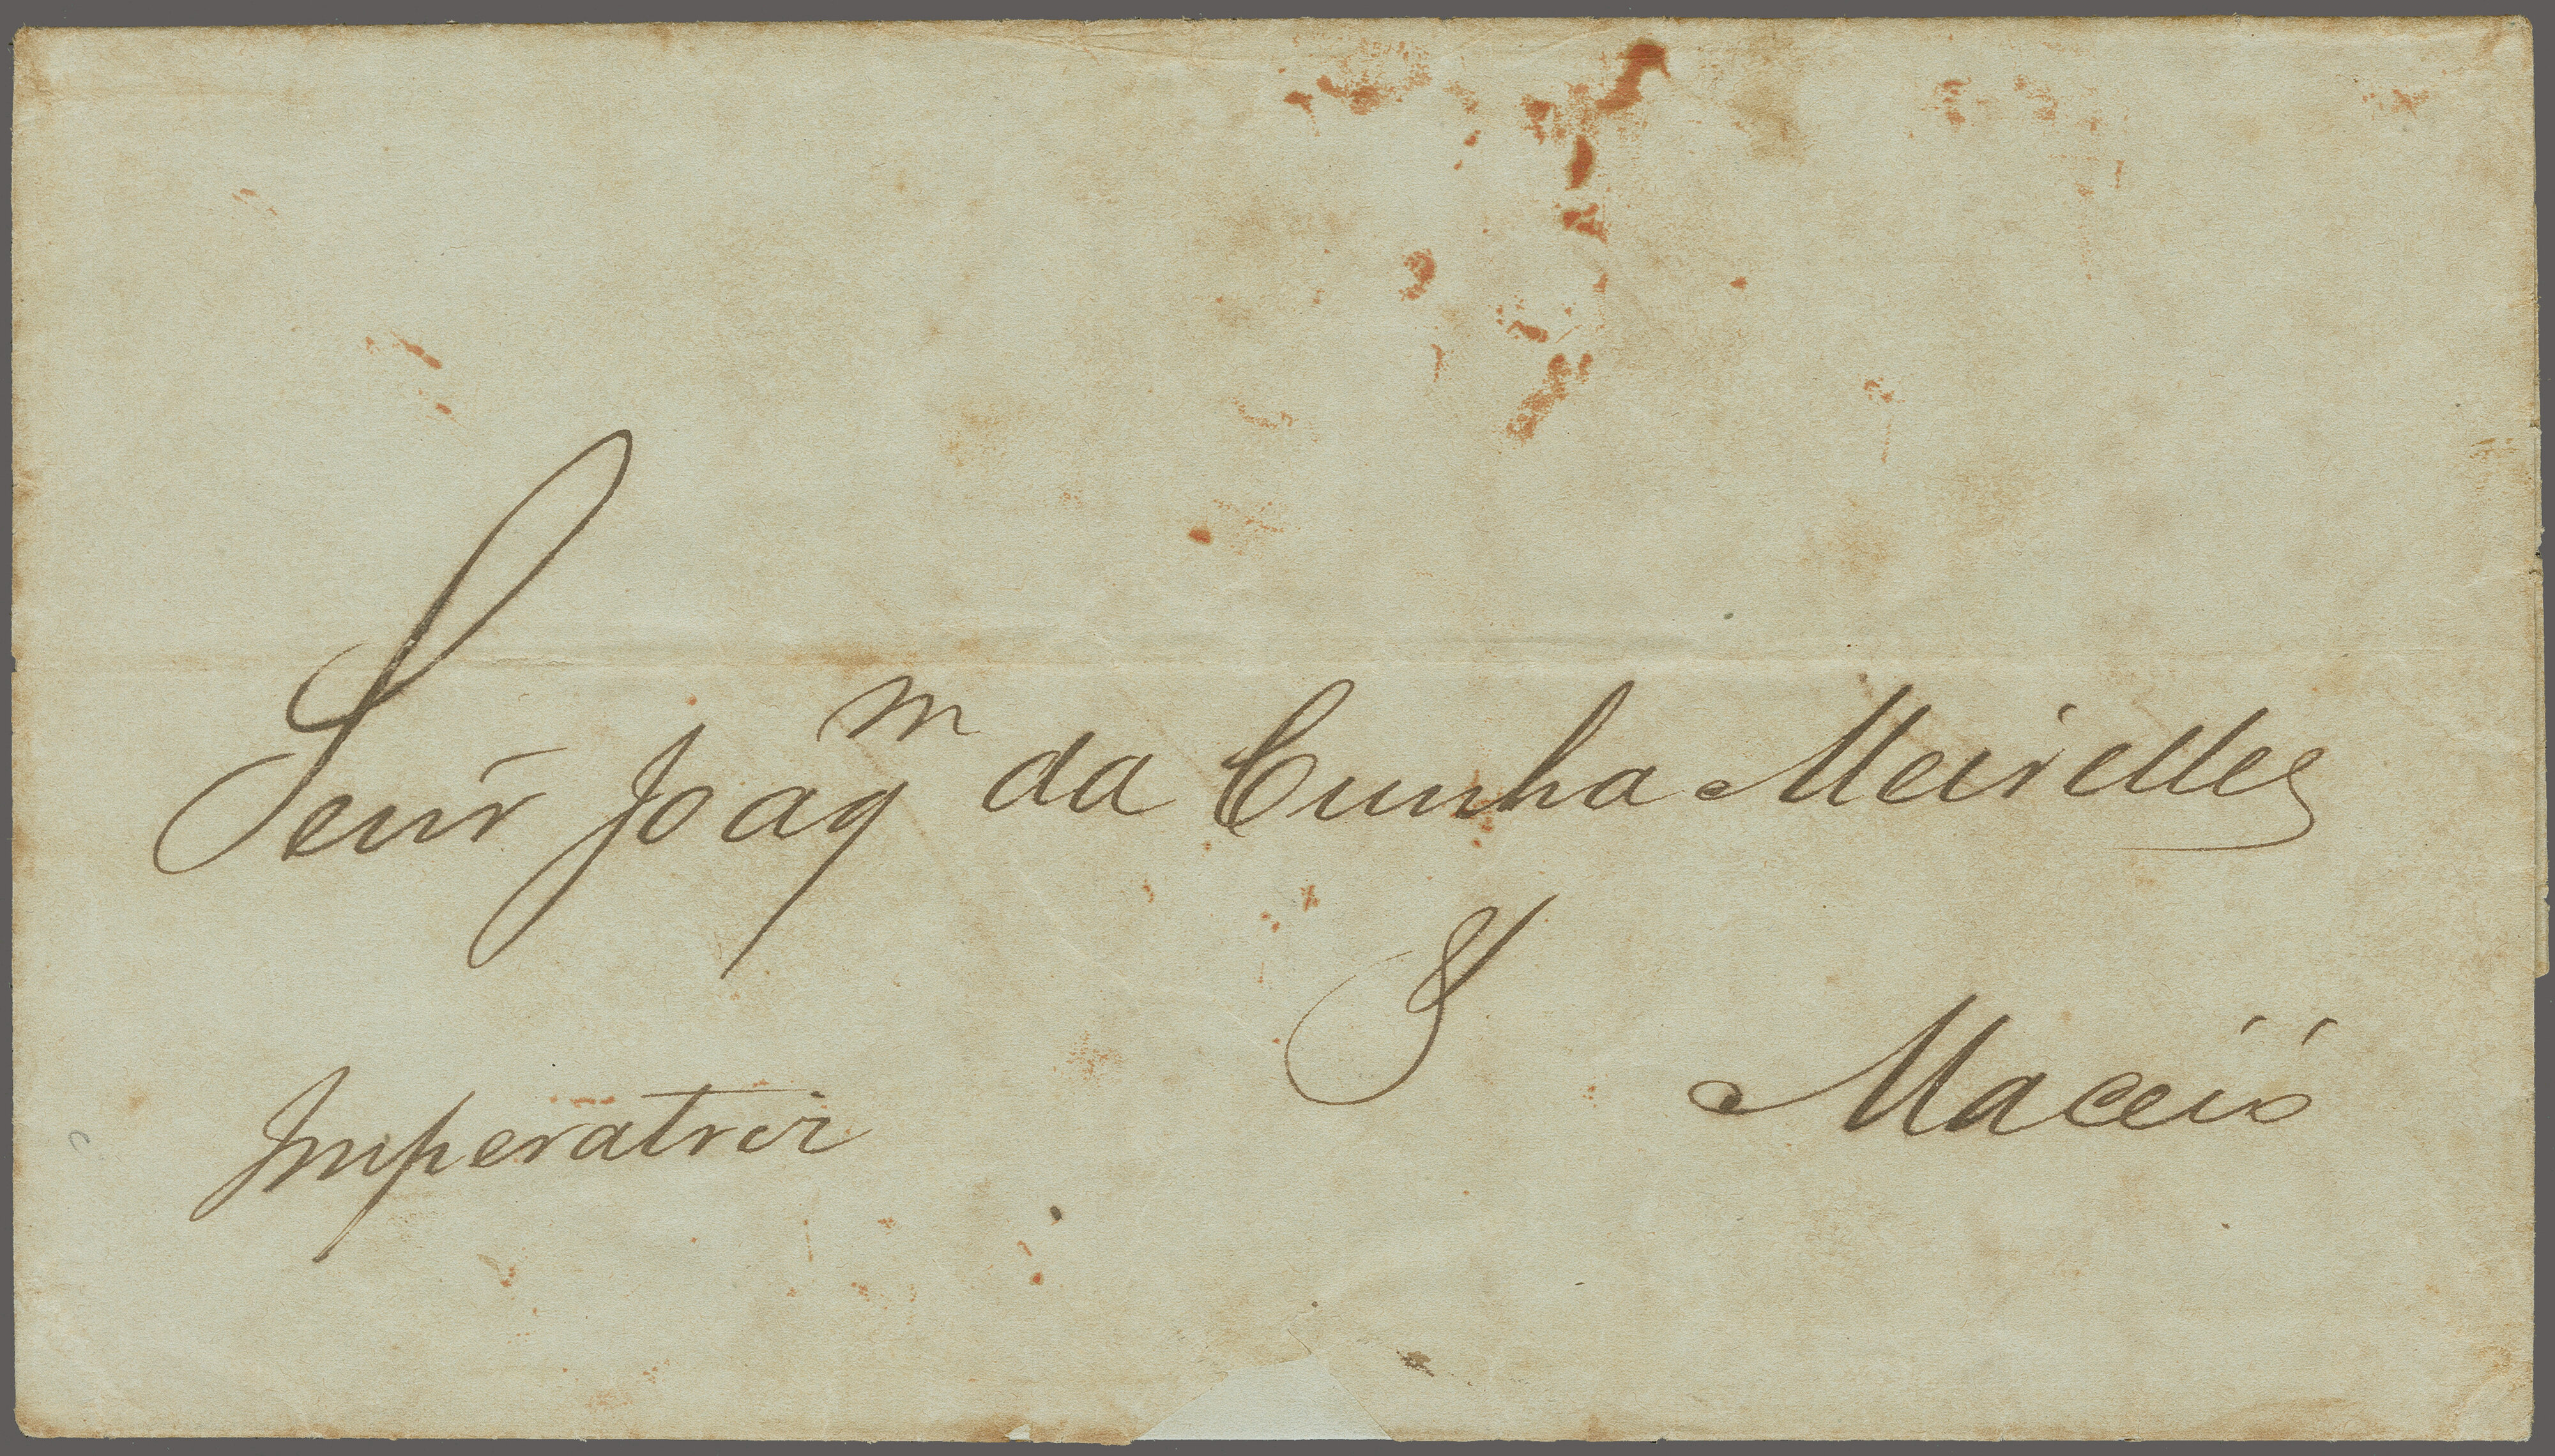 Senr Joaqm da Cunha Meirelles
S
Maceió
Imperatriz